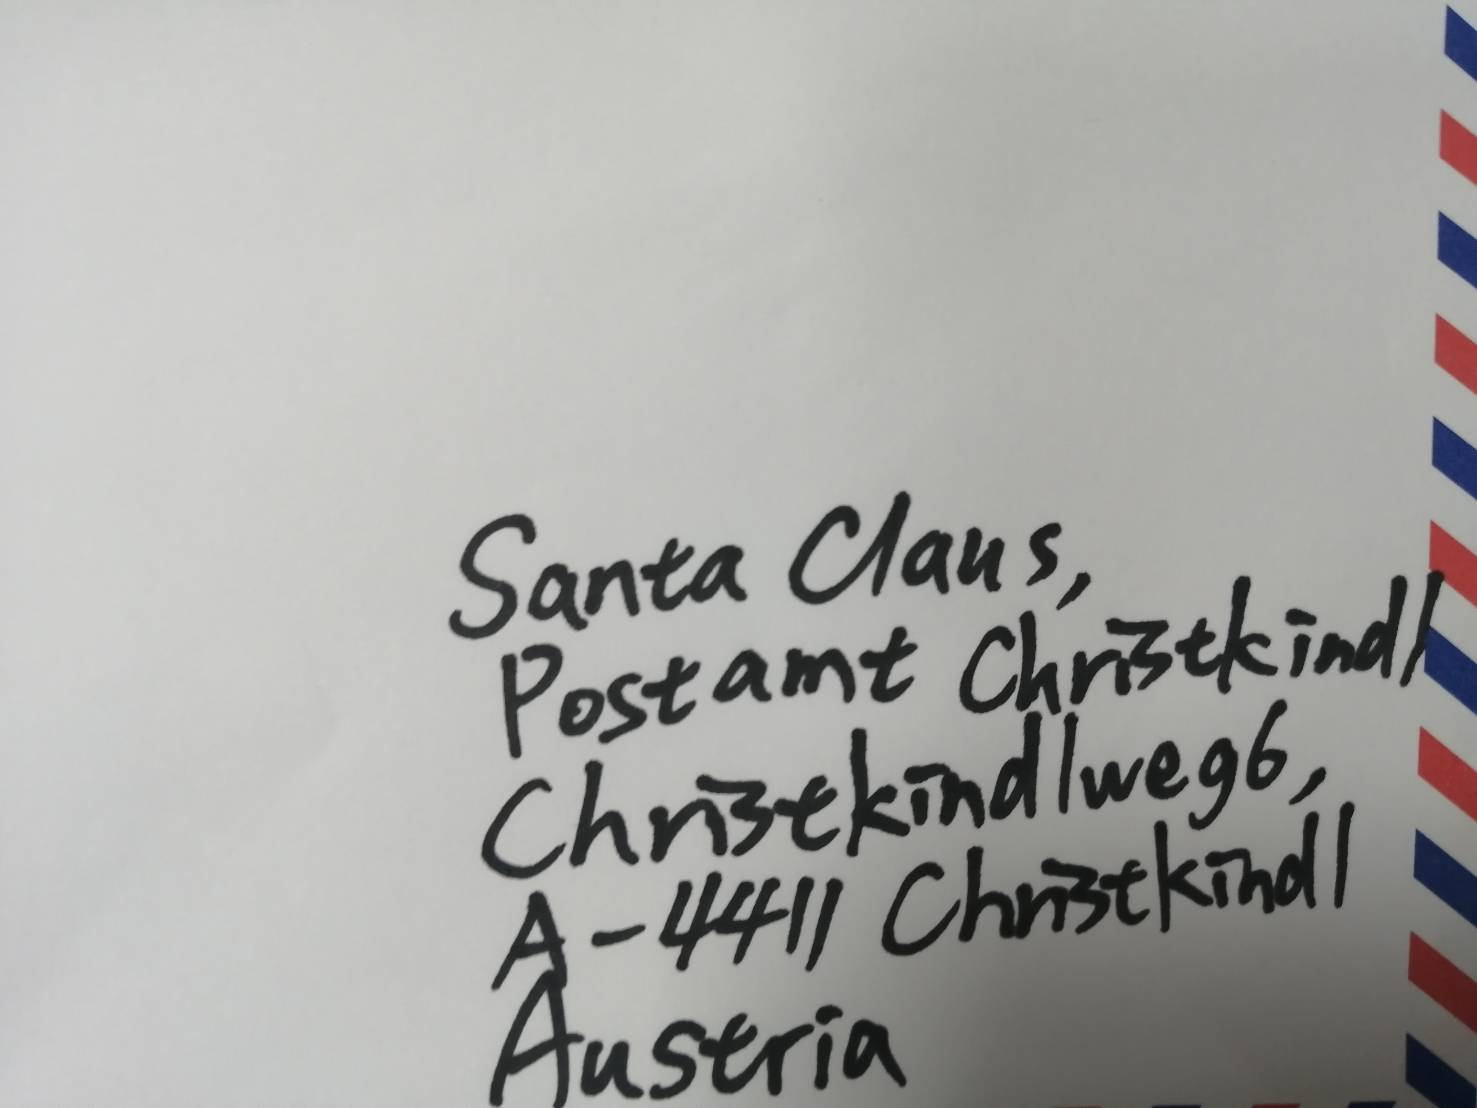 Santa Claus,
Postamt Christkindl
Christkindlweg6,
A-4411 Christkindl
Austria